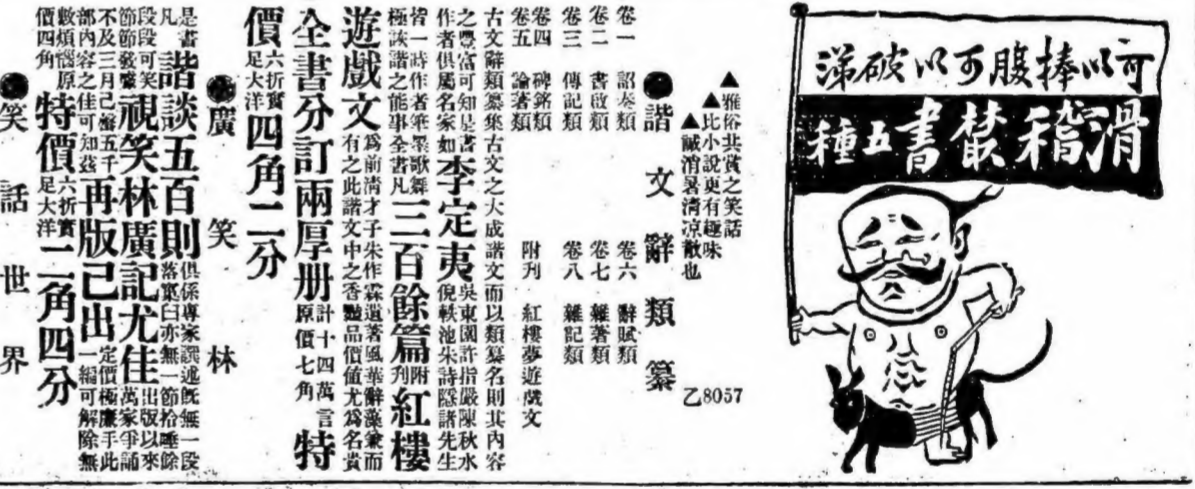 可以捧腹可以破涕
滑稽叢書五種
▲雅俗共賞之笑話
▲比小說更有趣味
▲誠消暑清凉散也
乙8057
◉諧文辭類纂
卷一 詔奏類 卷六 辭賦類
卷二 書啟類 卷七 雜著類
卷三 傳記類 卷八 雜記類
卷四 碑銘類
卷五 論著類 附刊 紅樓夢遊戲文
古文辭類纂集古文之大成諧文而以類纂名則其內容
之豐富可知是書作者俱屬名家如李定夷吳東園許指嚴陳秋水倪軼池朱詩隱諸先生
皆一時作者筆墨歌舞極詼諧之能事全書凡三百餘篇附刊紅樓
遊戲文為前清才子朱作霖遺著風華辭藻兼而有之此諧文中之香豔品價值尤為名貴
全書分訂兩厚册計十四萬言原價七角特
價六折實足大洋四角二分
◉廣笑林
是書凡諧談五百則俱係專家譔述既無一段落窠臼亦無一節拾唾餘
段段可笑節節發噱視笑林廣記尤佳出版以來萬家爭誦
不及三月已罄五千部內容之佳可知茲再版已出定價極廉手此一編可解除無
數煩惱原價四角特價六折實足大洋二角四分
◉笑話世界